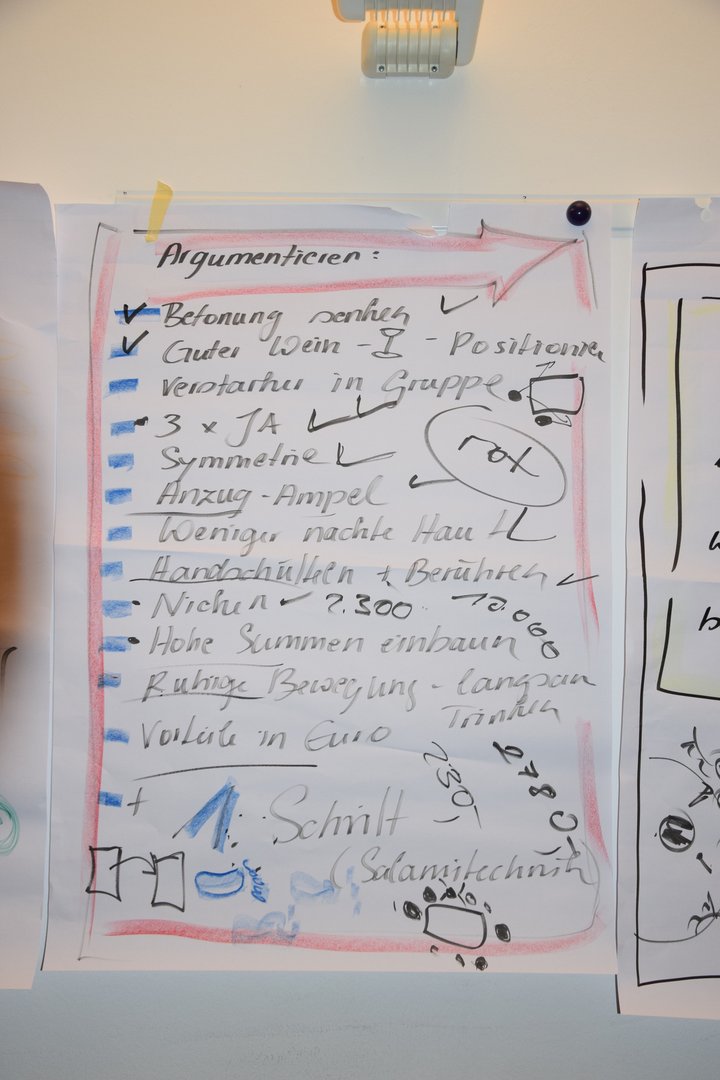 Argumentieren:
Betonung senken
Guter Wein - - Positionier
Verstärker in Gruppe
3 x JA
Symmetrie
rot
Anzug - Ampel
Weniger nackte Haut
Handschütteln + Berühren
Nicken 2.300 12.000
Hohe Summen einbaun
Ruhige Bewegung - langsam
Trinken
Vorteile in Euro
230,- 2780,-
+ 1. Schritt
(Salamitechnik)